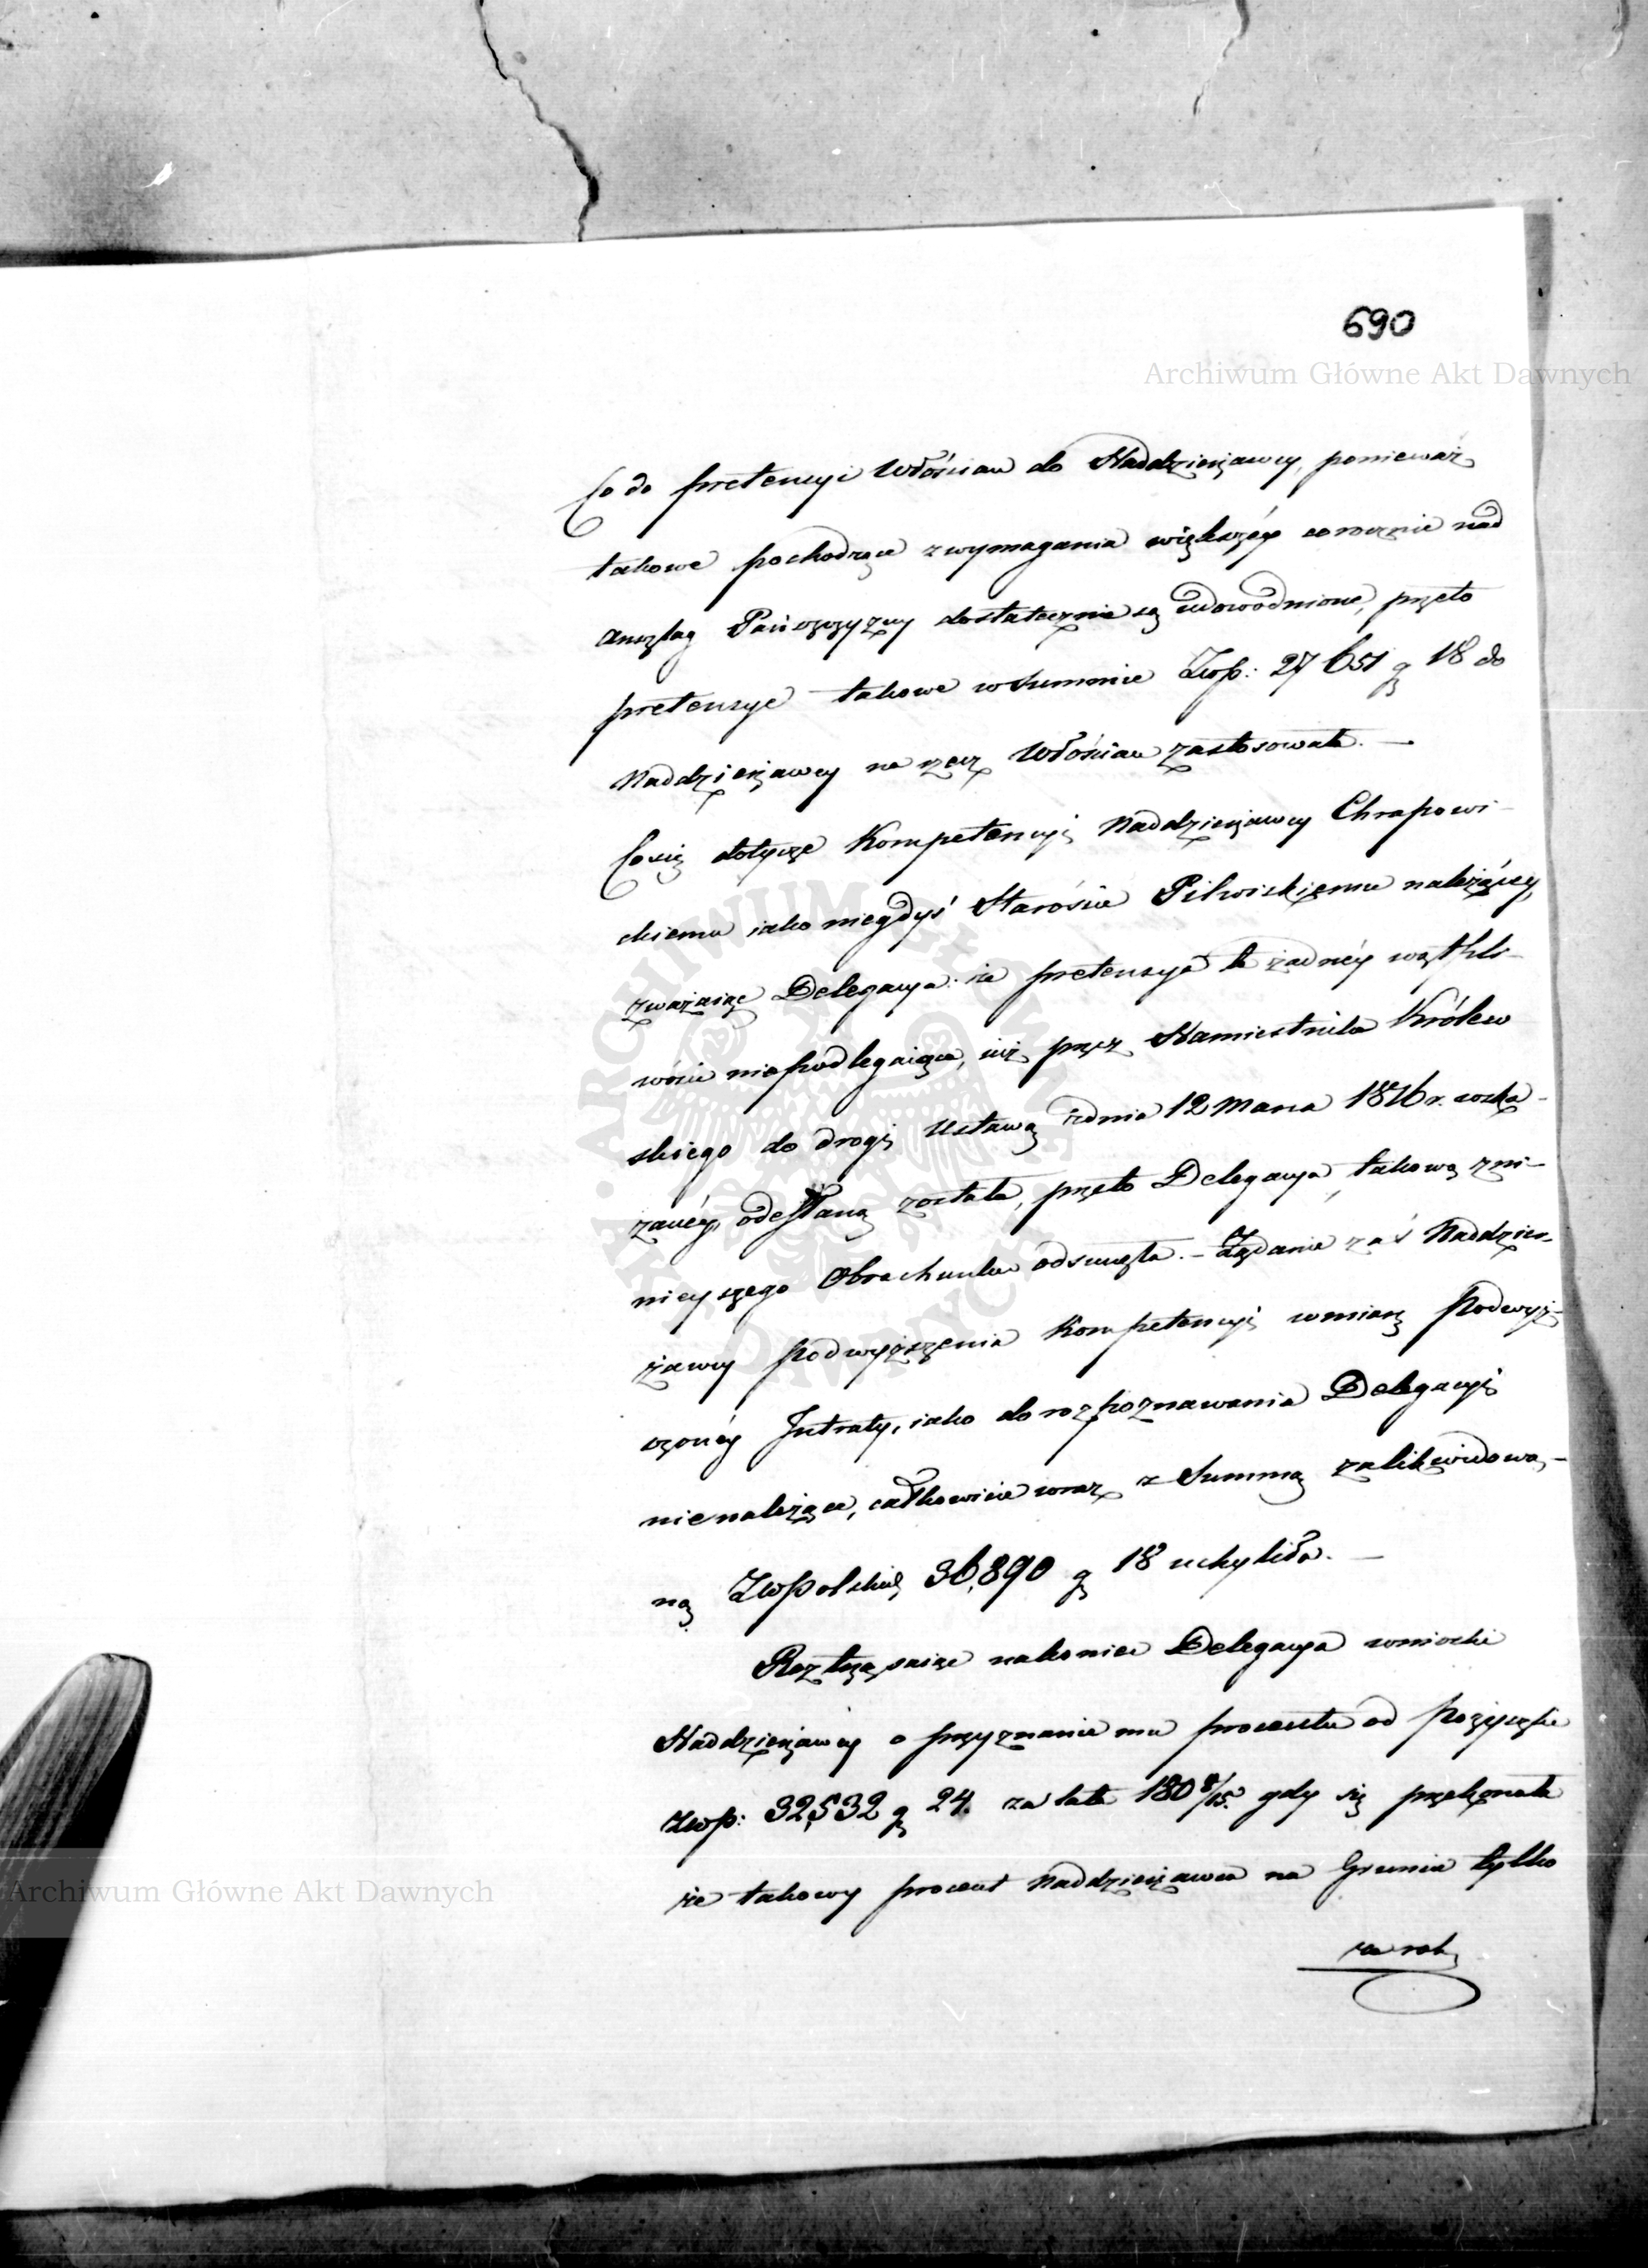 690
Archiwum Główne Akt Dawnych
Co do pretensyi Włościan do Naddzierżawcy, ponieważ
takowe pochodzące z wymagania większéy corocznie nad
anszlag Pańszczyzny dostatecznie są udowodnione, przeto
pretensye takowe w summie Złp: 27651 g 18 do
Naddzierżawcy na rzecz Włościan zastosowała. —
Co się dotycze Kompetencyi Naddzierżawcy Chrapowi-
ckiemu iako niegdyś Staroście Pilwiskiemu należącey,
zważaiąc Delegacya: że pretensya ta żadnéy wątpli-
wości niepodlegaiąca, iuż przez Namiestnika Królew
skiego do drogi Ustawą z dnia 12 Marca 1816 r. wska-
zanéy, odesłaną została, przeto Delegacya takową z ni-
nieyszego Obrachunku odsunęła. — Żądanie zaś Naddzier-
żawcy podwyższenia Kompetencyi w miarę podwyż-
szonéy Intraty, iako do rozpoznawania Delegacyi
nienależące, całkowicie wraz z Summą zalikwidowa-
ną Złpolskich 36,890 g 18 uchyliła. —
Roztrząsaiąc nakoniec Delegacya wnioski
Naddzierżawcy o przyznanie mu procentu od pożyczki
Złp: 32,532 g 24. za lata 180 8/15. gdy się przekonała
że takowy procent Naddzierżawca na Gruncie tylko
za rok
Archiwum Główne Akt Dawnych
ARCHIWUM GŁÓWNE AKT DAWNYCH